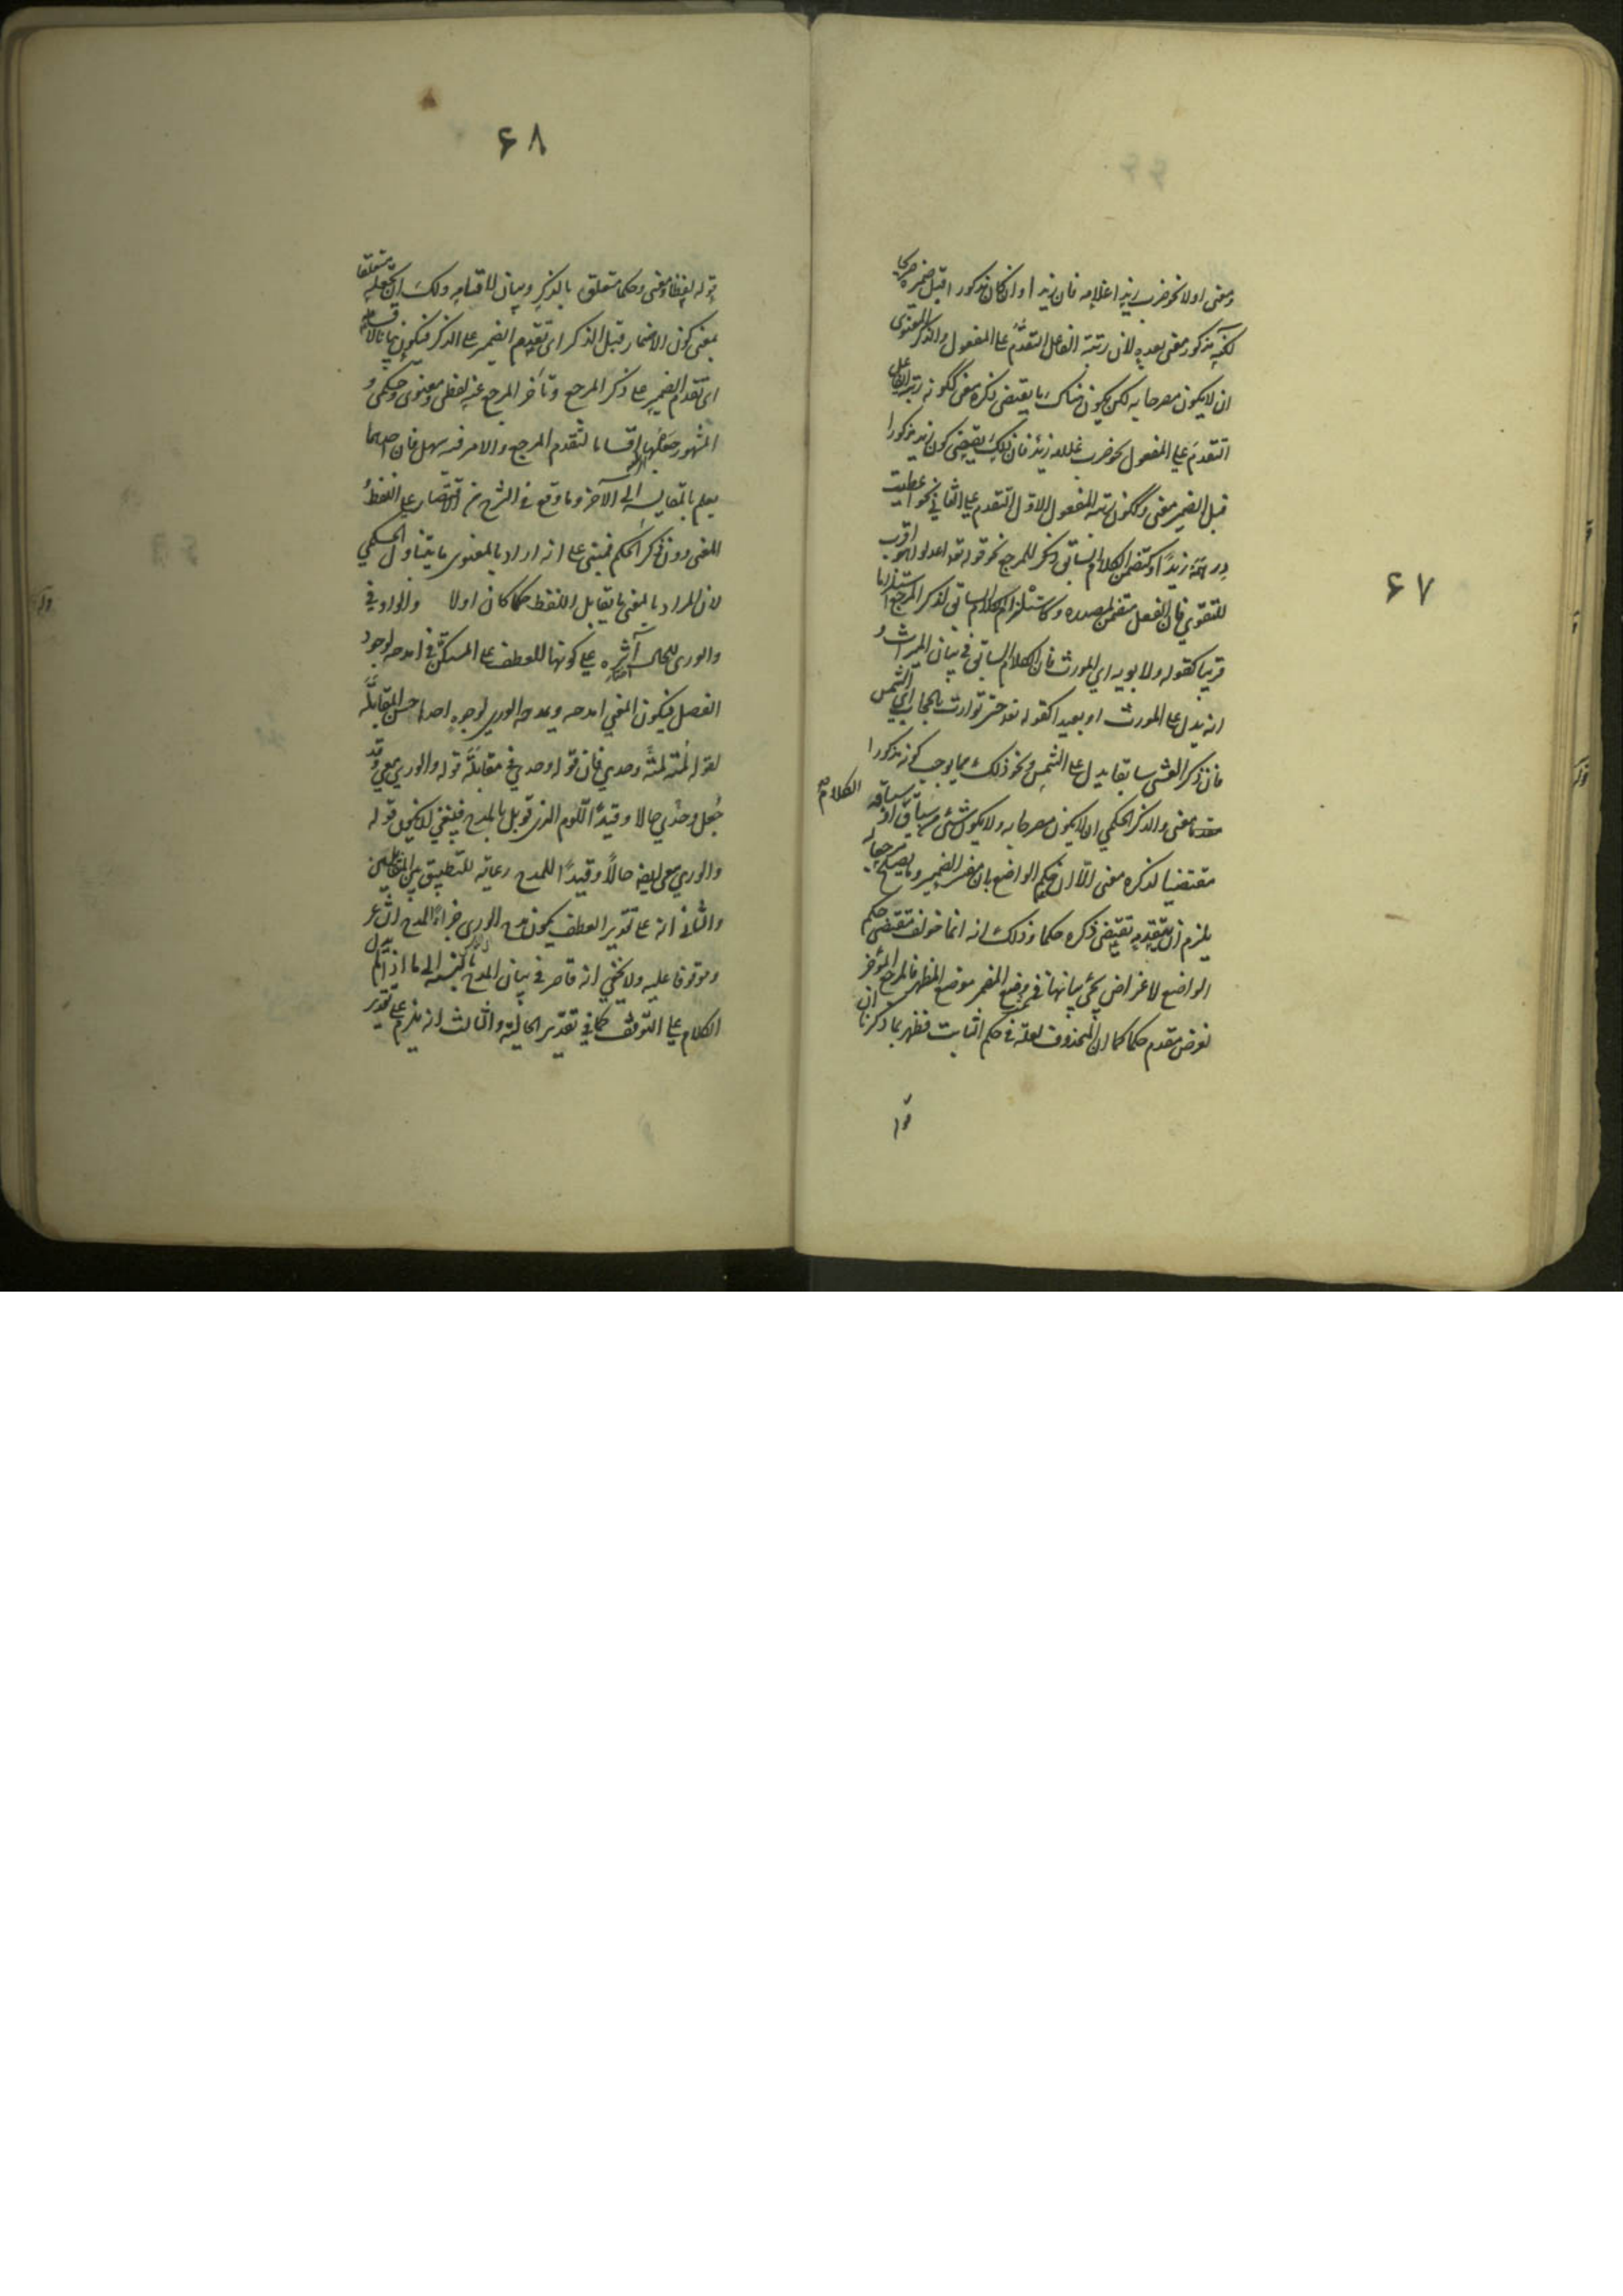 ٦٧
ومعنى اولا نحو ضرب زيدا غلامه فان زيدا وان كان مذكورا قبل ضميره صريحا
لكنه مذكور معنى بعده لان رتبة الفاعل التقدم على المفعول والذكر المعنوي
ان لا يكون مصرحا به لكن يكون هناك ما يقتضى ذكره معنى ككونه رتبة الفاعل
التقدم على المفعول نحو ضرب غلامه زيد فان ذلك يقتضى كون زيد مذكورا
قبل الضمير معنى وككون رتبة المفعول الاول التقدم على الثاني نحو اعطيت
درهمه زيدا وكتضمن الكلام السابق ذكر المرجع نحو قوله تعا اعدلوا هو اقرب
للتقوى فان الفعل متضمن لمصدره وكاستلزام الكلام السابق لذكر المرجع استلزاما
قريبا كقوله ولابويه اي المورث فان الكلام السابق في بيان الميراث و
انه يدل على المورث او بعيدا كقوله تعه حتى توارت بالحجاب اي الشمس
فان ذكر العشي سابقا يدل على الشمس ونحو ذلك مما يوجب كونه مذكورا
معنى والذكر الحكمي ان لا يكون مصرحا به ولا يكون شئ من سياق الكلام او سباقه
مقتضيا لذكره معنى الا ان حكم الواضع بان مفسر الضمير وما يصلح مرجعا له
يلزم ان يتقدمه يقتضى ذكره حكما وذلك انه انما خولف مقتضى حكم
الواضع لاغراض يجئ بيانها في وضع المضمر موضع المظهر فالمرجع المؤخر
لغرض مقدم حكما كما ان المحذوف لعلة في حكم الثابت فظهر بما ذكرنا ان
قو
٦٨
قوله لفظا ومعنى وحكما متعلق بالذكر وبيان لاقسامه ولك ان تجعله متعلقا
بمعنى كون الاضمار قبل الذكر اى تقدم الضمير على الذكر فيكون بيانا لاقسامه
اى تقدم الضمير على ذكر المرجع وتأخر المرجع عنه لفظى ومعنوى وحكمى و
المشهور جعلها اقساما لتقدم المرجع والامر فيه سهل فان احدهما
يعلم بالمقايسة الى الآخر وما وقع في الشرح من الاقتصار على اللفظ و
المعنى دون ذكر الحكم فمبنى على انه اراد بالمعنوى ما يتناول الحكمي
لان المراد بالمعنى ما يقابل اللفظ حكما كان اولا والواو في
والورى للحال آثره على كونها للعطف على المستكن في امدحه لوجود
الفصل فيكون المعنى امدحه ويمدحه الورى لوجوه احدها حسن المقابلة
لقوله لمته لمته وحدي فان قوله وحدي في مقابلة قوله والورى معي وقد
جعل وحدي حالا وقيدا للوم الذى قوبل بالمدح فينبغى ان يكون قوله
والورى معى ايضه حالا وقيدا للمدح رعاية للتطبيق بين المتقابلين
والثانى انه على تقدير العطف يكون مدح الورى جزاء لمدح الشاعر
وموقوفا عليه ولا يخفى انه قاصر في بيان المدح بالنسبة الى ما اذا لم يدل
الكلام على التوقف كما في تقدير الحالية والثالث انه يلزم على تقدير